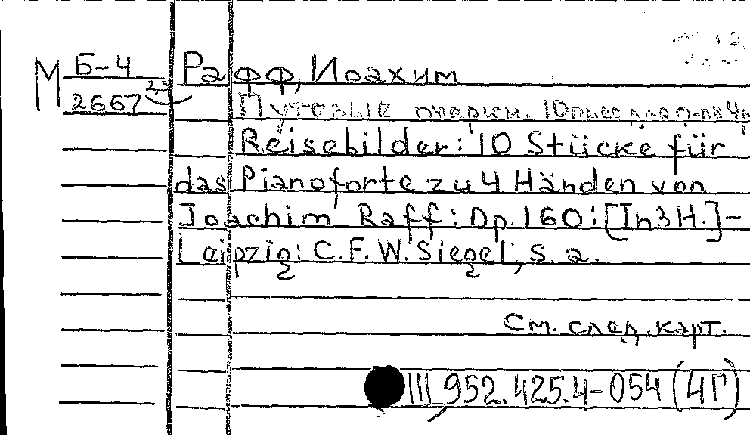 М Б-4
2667
Рафф, Иоахим
Путевые очерки. 10 пьес для ф-п. в 4р
Reisebilder: 10 Stücke für
das Pianoforte zu 4 Händen von
Joachim Raff: Op. 160: [In 3 H.] -
Leipzig: C. F. W. Siegel, s. a.
См. след. карт.
III 952.425.4-054 (4Г)